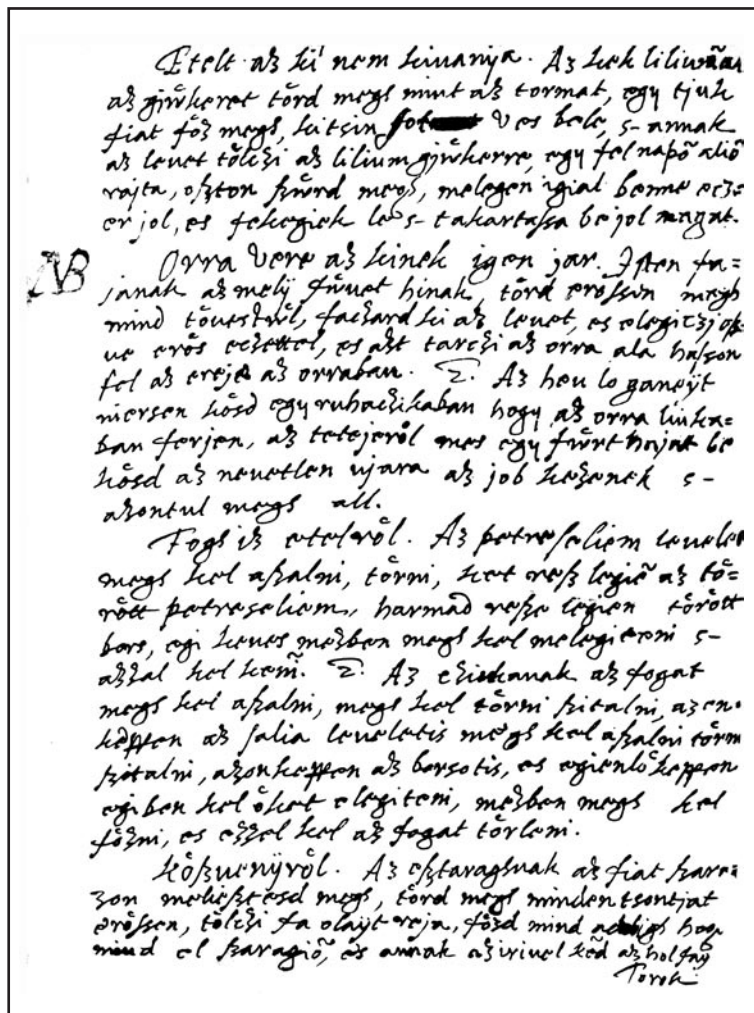 Etelt az ki nem kiuanÿa. Az kek liliumnac
az giwkeret törd megh mint az tormat, egy tjuk
fiat föz megh, kitsin sot ves bele, s- annak
az leuet tölczi az lilium giwkerre, egy fel napõ aliõ
rajta, oszton szwrd megh, melegen igial benne ecze
er jol, es fekegiek le s- takartassa be jol magat.
NB Orra vere az kinek igen jar. Isten fa=
janak az melÿ fwuet hinak, törd erossen megh
mind töuestwl, faczard ki az leuet, es elegitzj osz
ue erös eczettel, es azt tarczi az orra ala hasson
fel az ereje az orraban. 2. Az heu lo ganeÿt
niersen kösd egy ruhaczikaban hogy az orra liuka=
ban ferjen, az tetejeröl mes egy fwrt hajat be
kösd az neuetlen ujara az job kezenek s-
azontul megh all.
Fogh iz etelröl. Az petreseliem leuelet
megh kel aszalni, törni, ket resz legiẽ az tö=
rött petreseliem, harmad resze legien törött
bors, egi keues mezben megh kel melegiteni s-
azzal kel keñi. 2. Az czukanak az fogat
megh kel aszalni, megh kel törni szitalni, azon=
keppen az salia leueletis megh kel aszalni törni
szitalni, azonkeppen az borsotis, es egienlökeppen
egiben kel öket elegiteni, mezben megh kel
fözni, es ezzel kel az fogat törleni.
Köszuenÿröl. Az esztaraghnak az fiat szara=
zon melieszt esd megh, törd megh minden tsontjat
erössen, tölczi fa olaÿt reja, fözd mind addigh hog
mind el szaragiõ, es annak azirіuel kẽd az hol faÿ
Torok